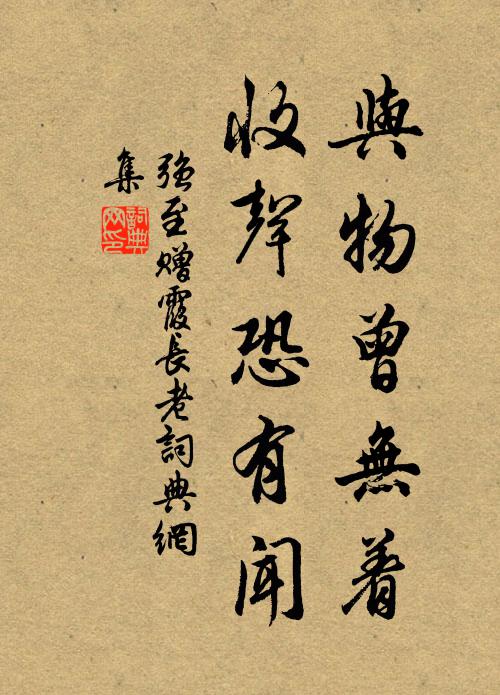 與物曾無着
收聲恐有聞
強至贈霞長老詞典網
集
詞典
网印